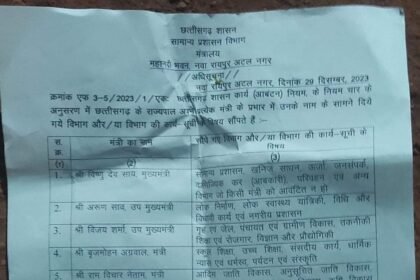 छत्तीसगढ़ शासन
सामान्य प्रशासन विभाग
मंत्रालय
महानदी भवन, नवा रायपुर अटल नगर
//अधिसूचना//
नवा रायपुर अटल नगर, दिनांक 29 दिसम्बर, 2023
क्रमांक एफ 3-5/2023/1/एकः छत्तीसगढ़ शासन कार्य (आबंटन) नियम, के नियम चार के
अनुसरण में छत्तीसगढ़ के राज्यपाल प्रत्येक मंत्री के प्रभार में उनके नाम के सामने दिये
गये विभाग और/या विभाग की कार्य-सूची के विषय सौंपते हैं :-
स. क्र. मंत्री का नाम सौंपे गए विभाग और/या विभाग की कार्य-सूची के विषय
(1) (2) (3)
1. श्री विष्णु देव साय, मुख्यमंत्री सामान्य प्रशासन, खनिज साधन, ऊर्जा, जनसंपर्क,
वाणिज्यिक कर (आबकारी), परिवहन एवं अन्य
विभाग जो किसी मंत्री को आबंटित न हो
2. श्री अरुण साव, उप मुख्यमंत्री लोक निर्माण, लोक स्वास्थ्य यांत्रिकी, विधि और
विधायी कार्य एवं नगरीय प्रशासन
3. श्री विजय शर्मा, उप मुख्यमंत्री गृह एवं जेल, पंचायत एवं ग्रामीण विकास, तकनीकी
शिक्षा एवं रोजगार, विज्ञान और प्रौद्योगिकी
4. श्री बृजमोहन अग्रवाल, मंत्री स्कूल शिक्षा, उच्च शिक्षा, संसदीय कार्य, धार्मिक
न्यास एवं धर्मस्व, पर्यटन एवं संस्कृति
5. श्री राम विचार नेताम, मंत्री आदिम जाति विकास, अनुसूचित जाति विकास,